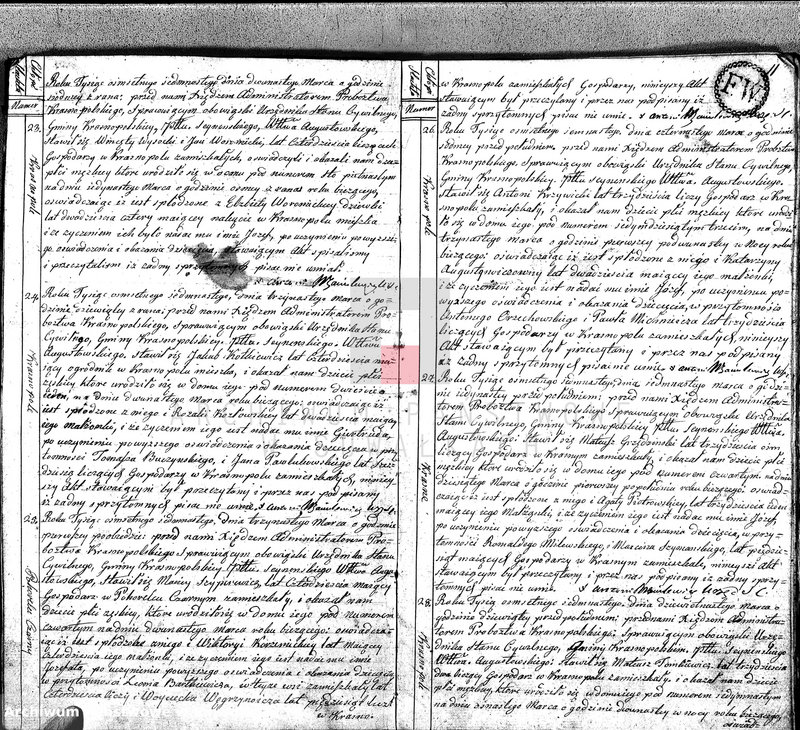 Roku Tysiąc osmsetnego siedmnastego dnia dwunastego Marca o godzinie
siódmey z rana: przed nami Xiędzem Administratorem Proboztwa
Krasnopolskiego, Sprawuiącym obowiązki Urzędnika Stanu Cywilnego,
Numer
23.
Krasnopole
Gminy Krasnopolskiey, Pttu. Seynenskiego, Wttwa Augustowskiego,
Stawił się Wincenty Wysocki i Jan Woronicki, lat Czterdzieści
Gospodarz w Krasnopolu zamieszkałych, oświadczyli i okazali nam dziecię
płci męzkiey które urodziło się w domu pod numerem sto piętnastym
na dniu iedynastego Marca o godzinie osmey z rana roku bieżącego,
oświadczaiąc iż iest spłodzone z Elżbiety Woronickiey dziewki
lat dwadzieścia cztery maiącey w Krasnopolu
i że życzeniem ich było nadać mu imie Józef, po uczynieniu powyższe-
go oświadczenia i okazania dziecięcia, Stawaiącym Akt spisaliśmy
i przeczytaliśmy iż żadny sprzytomnych pisać nie umiał
24.
Krasnopole
Roku Tysiąc osmsetnego siedmnastego, dnia trzynastego Marca o go-
dzinie dziewiątey z rana; przed nami Xiędzem Administratorem Pro-
boztwa Krasnopolskiego, Sprawuiącym obowiązki Urzędnika Stanu
Cywilnego, Gminy Krasnopolskiey, Pttu. Seynenskiego, Wttwa
Augustowskiego, stawił się Jakub Kotkiewicz lat Czterdzieścia ma-
iący ogrodnik w Krasnopolu mieszka, i okazał nam dziecie płci
żęskiey które urodziło się w domu iego pod numerem dwieście
ieden, na dniu dwunastego Marca roku bieżącego; oświadczaiąc iż
iest spłodzone z niego i Rozalii Kozłowskiey lat dwadzieścia maiącey
iego małżonki, i że życzeniem iego iest nadać mu imie Giertruda,
po uczynieniu powyższego oświadczenia i okazania dziecięcia w przy-
tomności Tomasza Buczynskiego, i Jana Pawlubowskiego lat trzy-
dzieścia liczących Gospodarzy w Krasnopolu zamieszkałych, ninieyszy
Akt Stawaiącym był przeczytany i przez nas podpisany
iż żadny z przytomnych pisać nie umie.
25.
Pohorelec Czarny
Roku Tysiąc osmsetnego siedmnastego, dnia trzynastego Marca o godzinie
pierwszey po obiedzie: przed nami Xiędzem Administratorem Pro-
boztwa Krasnopolskiego Sprawuiącym obowiązki Urzędnika Stanu
Cywilnego, Gminy Krasnopolskiey, Pttu. Seynenskiego Wttwa Augu-
stowskiego, Stawił się Maciey lat Czterdzieścia maiący
Gospodarz w Pohorelcu Czarnym zamieszkały, i okazał nam
dziecie płci żęskiey, które urodziło się w domu iego pod numerem
czwartym na dniu dwunastego Marca roku bieżącego; oświadcza-
iąc iż iest spłodzone z niego i Wiktoryi Korzenickiey lat maiącey
Czterdzieścia iego małżonki, i że życzeniem iego iest nadać mu imie
Jozefata, po uczynieniu powyższego oświadczenia i okazania dziecięcia
w przytomności Leona Bartkiewicza, w teyże wsi zamieszkały lat
Czterdzieścia liczący i Woyciecha Węgrzynowicza lat pięćdziesiąt liczą
w Krasno.
11
FW
Numer
w Krasnopolu zamieszkałych Gospodarzy, ninieyszy Akt
stawaiącym był przeczytany i przez nas podpisany iż
żadny z przytomnych pisać nie umie.
26.
Krasnopole
Roku Tysiąc osmsetnego siemnastego, dnia czternastego Marca o godzinie
siódmey przed południem, przed nami Xiędzem Administratorem Proboztwa
Krasnopolskiego, Sprawuiącym obowiązki Urzędnika Stanu Cywilnego,
Gminy Krasnopolskiey, Pttu Seynenskiego Wttwa. Augustowskiego,
Stawił się Antoni Krzywicki lat trzydzieścia liczy Gospodarz w Kra-
snopolu zamieszkały, i okazał nam dziecie płci męzkiey które urodzi-
ło się w domu iego pod numerem siedmdziesiątym trzecim, na dniu
trzynastego Marca o godzinie pierwszey podwunastey w Nocy roku
bieżącego; oświadczaiąc iż iest spłodzone z niego i Katarzyny
Augustynowiczowny lat dwadzieścia maiącey iego małżonki,
i że życzeniem iego iest nadać mu imie Józef, po uczynieniu po-
wyższego oświadczenia i okazania dziecięcia, w przytomności
Antoniego Orzechowskiego i Pawła Michniewicza lat trzydzieścia
liczących Gospodarzy w Krasnopolu zamieszkałych, ninieyszy
Akt stawaiącym był przeczytany i przez nas podpisany
iż żadny z przytomnych pisać nie umie
27.
Krasne
Roku Tysiąc osmsetnego siemnastego, dnia siedmnastego Marca o godzi-
nie iedynastey przed południem; przed nami Xiędzem Administra-
torem Proboztwa Krasnopolskiego Sprawuiącym obowiązki Urzędnika
Stanu Cywilnego, Gminy Krasnopolskiey Pttu. Seynenskiego Wttwa.
Augustowskiego; Stawił się Mateusz lat trzydzieścia osm
liczący Gospodarz w Krasnym zamieszkały, i okazał nam dziecie płci
męzkiey które urodziło się w domu iego pod numerem czwartym, na dniu
dziesiątego Marca o godzinie pierwszey po południu roku bieżącego, oświad-
czaiąc iż iest spłodzone z niego i Agaty Piotrowskiey, lat trzydzieścia ieden
maiącey iego Małżonki, i że życzeniem iego iest nadać mu imie Józef,
po uczynieniu powyższego oświadczenia i okazania dziecięcia, w przy-
tomności Romualdego Milewskiego, i Marcina Szymanskiego, lat pięćdzie-
siąt maiących Gospodarzy w Krasnym zamieszkałe, ninieyszy Akt
stawaiącym był przeczytany i przez nas podpisany iż żadny z przy-
tomnych pisać nie umie
28.
Krasnopole
Roku Tysiąc osmsetnego siedmnastego. Dnia dziewiętnastego Marca o
godzinie dziewiątey przed południem; przed nami Xiędzem Administra-
torem Proboztwa Krasnopolskiego; Sprawuiącym obowiązki Urzę-
dnika Stanu Cywilnego, Gminy Krasnopolskiey, Pttu. Seynenskiego
Wttwa. Augustowskiego; Stawił się Mateusz Tomkiewicz lat trzydzieścia
dwa liczący Gospodarz w Krasnopolu zamieszkały, i okazał nam dziecie
płci męzkiey które urodziło się w domu iego pod numerem siedymnastym
na dniu osmnastego Marca o godzinie dwunastey w nocy roku bieżącego,
oświad
Archiwum